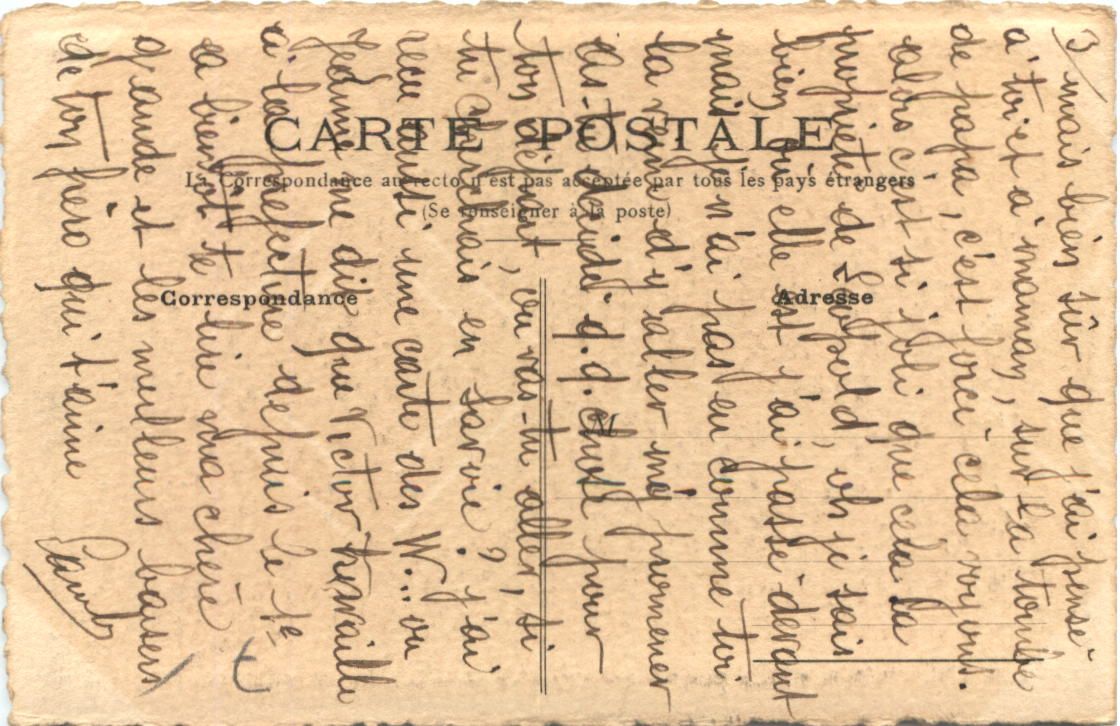 CARTE POSTALE
La Correspondance au recto n'est pas acceptée par tous les pays étrangers
(Se renseigner à la poste)
Correspondance
Adresse
M
3/ mais bien sûr que j'ai pensé
à toi et à maman, sur la tombe
de papa, c'est forcé cela voyons.
alors c'est si joli que cela la
propriété de Léopold, oh je sais
bien où elle est j'ai passé devant
mais je n'ai pas eu comme toi
la veine d'y aller me promener
as-tu
ton départ, où vas-tu aller, si
tu allais en Savoie ? j'ai
reçu aussi une carte des W... où
Jeanne dit que Victor travaille
à la Préfecture depuis le 1er
à bientôt te lire ma chérie
grande et les meilleurs baisers
de ton frère qui t'aime